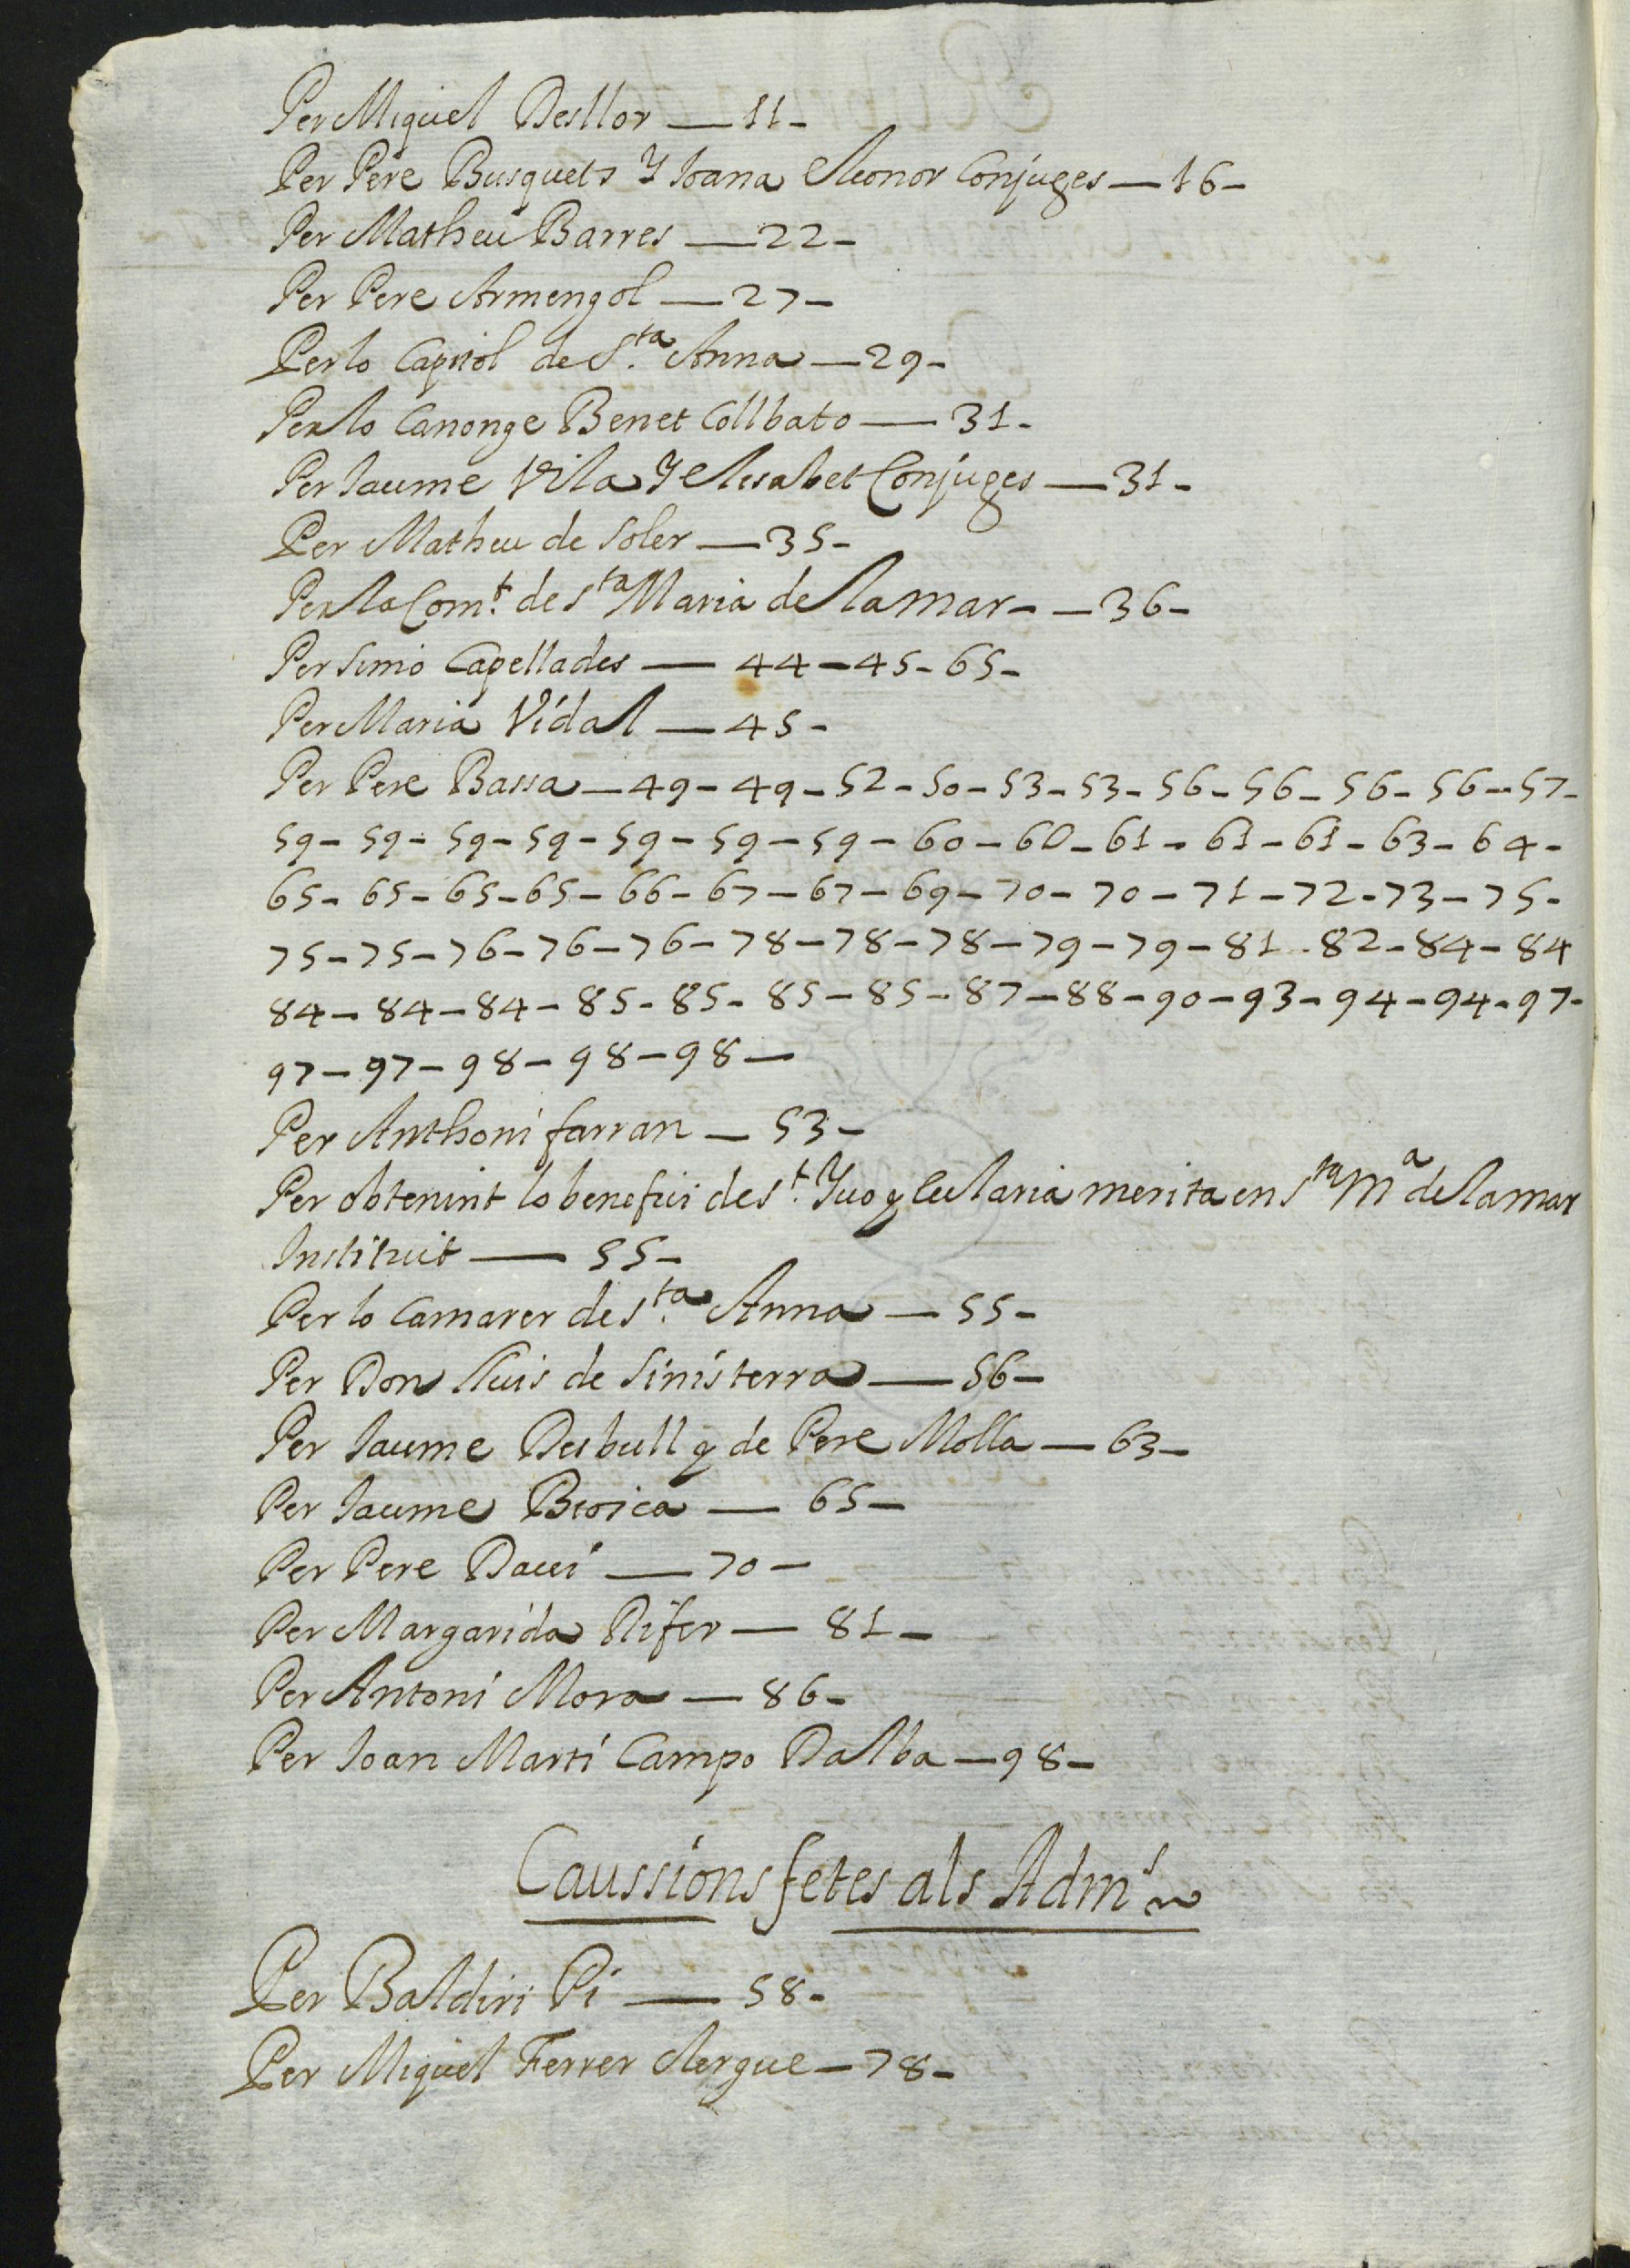 Per Miquel Desllor — 11 -
Per Pere Busquets Y Ioana Eleonor Conjuges — 16 -
Per Matheu Barres — 22 -
Per Pere Armengol — 27 -
Per lo Capitol de S.ta Anna — 29 -
Per lo Canonge Benet Collbato — 31 -
Per Iaume Vila Y Elisabet Conjuges — 31 -
Per Matheu de Soler — 35 -
Per la Com.t de Sta Maria de la mar - — 36 -
Per Simo Capellades — 44 - 45 - 65 -
Per Maria Vidal — 45 -
Per Pere Bassa — 49 - 49 - 52 - 50 - 53 - 53 - 56 - 56 - 56 - 56 - 57 -
59 - 59 - 59 - 59 - 59 - 59 - 59 - 60 - 60 - 61 - 61 - 61 - 63 - 64 -
65 - 65 - 65 - 65 - 66 - 67 - 67 - 69 - 70 - 70 - 71 - 72 - 73 - 75 -
75 - 75 - 76 - 76 - 76 - 78 - 78 - 78 - 79 - 79 - 81 - 82 - 84 - 84
84 - 84 - 84 - 85 - 85 - 85 - 85 - 87 - 88 - 90 - 93 - 94 - 94 - 97 -
97 - 97 - 98 - 98 - 98 —
Per Anthoni farran — 53 -
Per obtenint lo benefici de S.t Yuo q merita en Sta Ma de la mar
Instituit — 55 -
Per lo Camarer de S.ta Anna — 55 -
Per Don Lluis de Sinisterra — 56 -
Per Iaume Desbull q de Pere Molla — 63 -
Per Iaume Brosca — 65 -
Per Pere Daui — 70 -
Per Margarida Rifer — 81 -
Per Antoni Mora — 86 -
Per Ioan Marti Campo Dalba — 98 -
Caussions fetes als Adms
Per Baldiri Pi — 58 -
Per Miquel Ferrer Clergue — 78 -